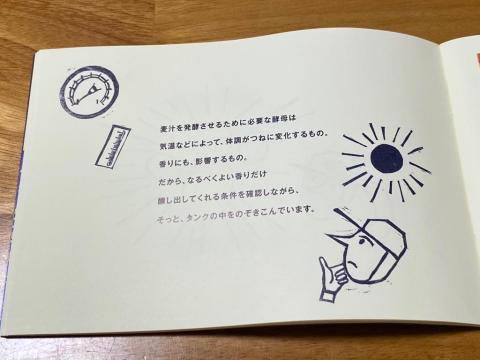 麦汁を発酵させるために必要な酵母は
気温などによって、体調がつねに変化するもの。
香りにも、影響するもの。
だから、なるべくよい香りだけ
醸し出してくれる条件を確認しながら、
そっと、タンクの中をのぞきこんでいます。